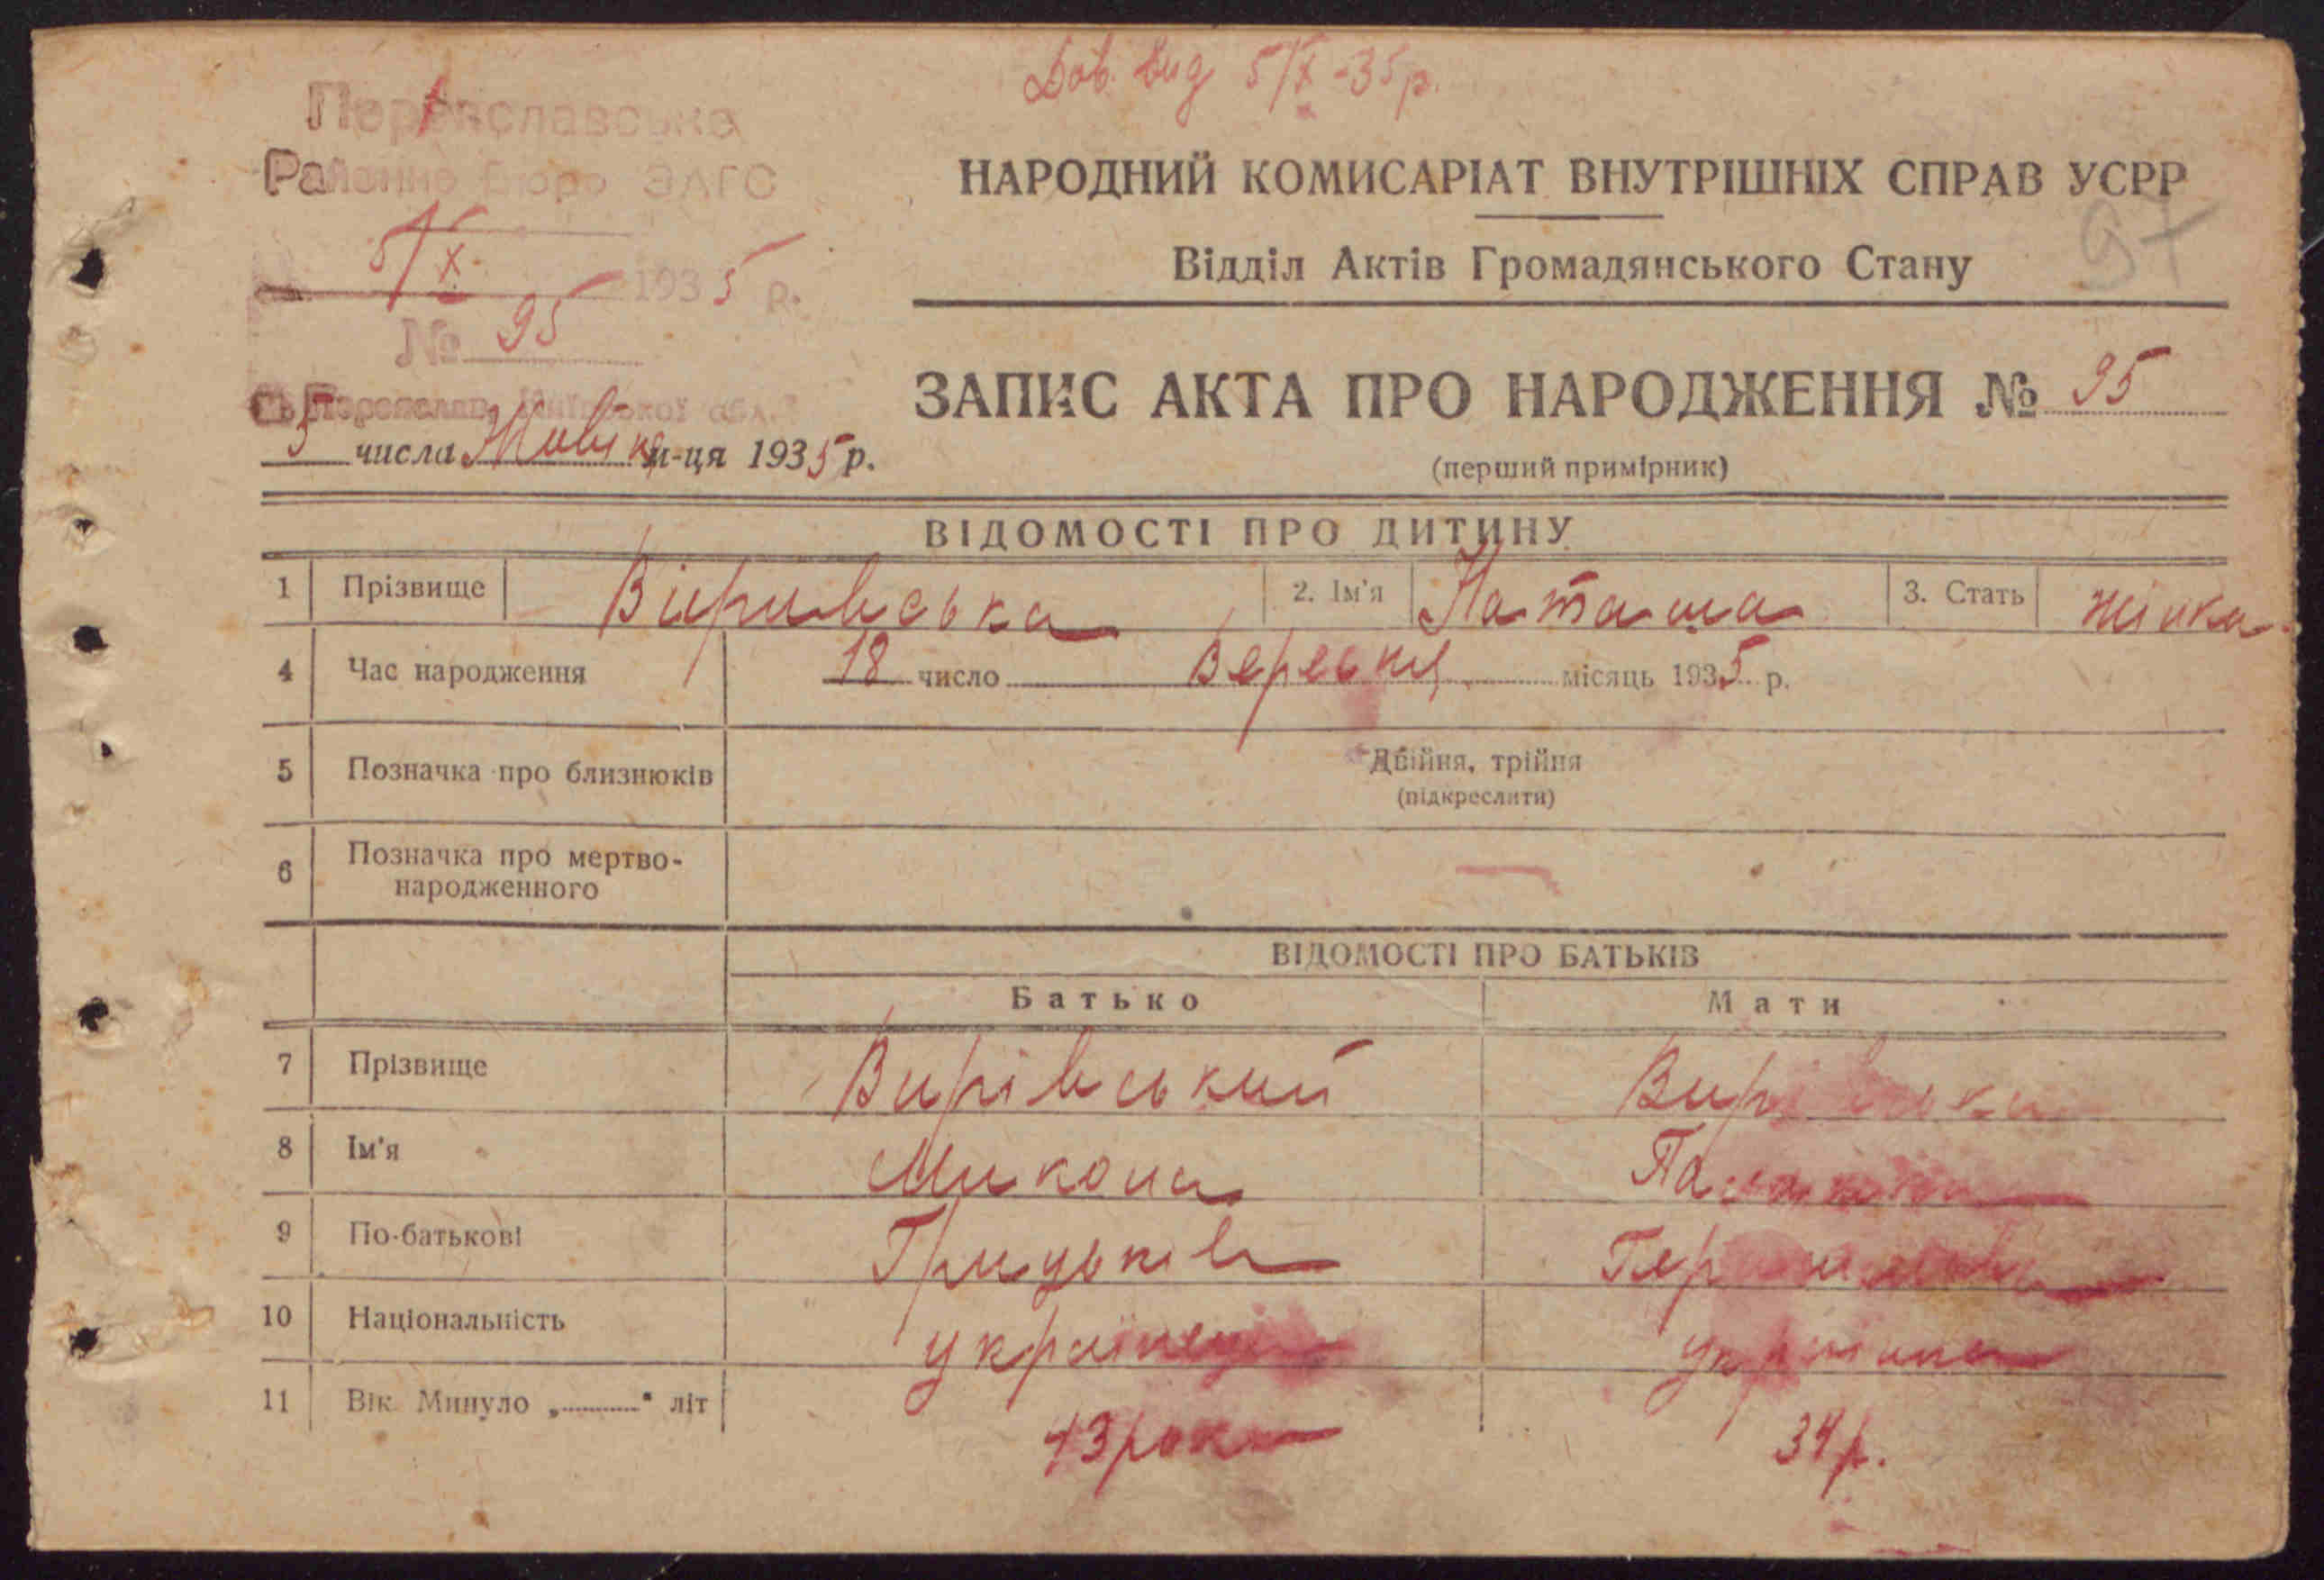 Дов. вид 5/X-35р.
Переяславське
Районне Бюро ЗАГС
5/X 1935 р.
№ 95
м. Переяслав, Київської обл.
НАРОДНИЙ КОМИСАРІАТ ВНУТРІШНІХ СПРАВ УСРР
97
Відділ Актів Громадянського Стану
ЗАПИС АКТА ПРО НАРОДЖЕННЯ № 95
5 числа Жовтня м-ця 1935 р.
(перший примірник)
ВІДОМОСТІ ПРО ДИТИНУ
1 Прізвище Виривська 2. Ім'я Наташа 3. Стать жінка
4 Час народження 18 число Вересня місяць 1935 р.
5 Позначка про близнюків Двійня, трійня
(підкреслити)
6 Позначка про мертво-
народженного —
ВІДОМОСТІ ПРО БАТЬКІВ
Батько Мати
7 Прізвище Вирівський Вирівська
8 Ім'я Микола
9 По-батькові Грицьків
10 Національність українець українка
11 Вік. Минуло „ " літ 43 роки 34 р.